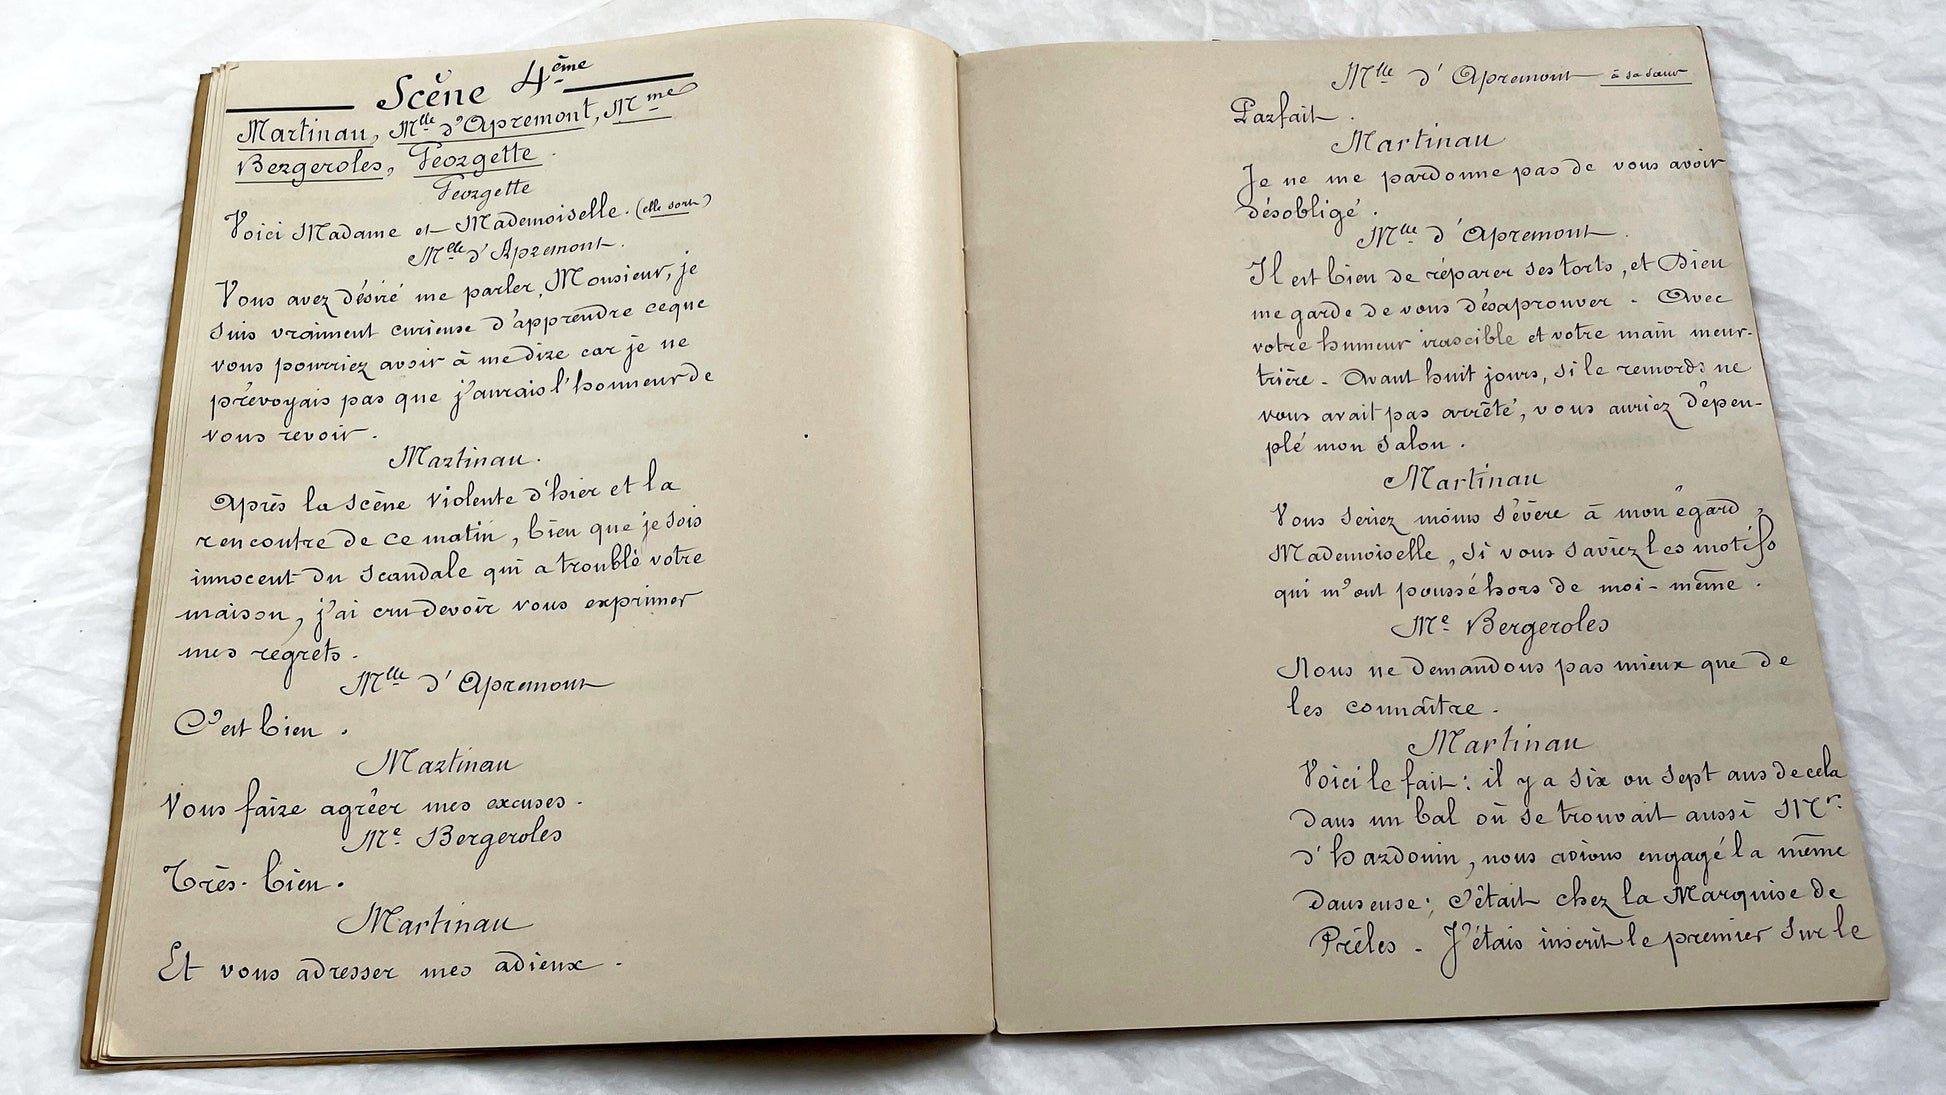 Scène 4ème
Martinau, Mlle d'Apremont, Mme
Bergeroles, Georgette.
Georgette
Voici Madame et Mademoiselle. (elle sort)
Mlle d'Apremont.
Vous avez désiré me parler, Monsieur, je
suis vraiment curieuse d'apprendre ceque
vous pourriez avoir à me dire car je ne
prévoyais pas que j'aurais l'honneur de
vous revoir.
Martinau.
Après la scène violente d'hier et la
rencontre de ce matin, bien que je sois
innocent du scandale qui a troublé votre
maison, j'ai cru devoir vous exprimer
mes regrets.
Mlle d'Apremont
C'est bien.
Martinau
Vous faire agréer mes excuses.
Me Bergeroles
Très-bien.
Martinau
Et vous adresser mes adieux.
Mlle d'Apremont à sa sœur
Parfait.
Martinau
Je ne me pardonne pas de vous avoir
désobligé.
Mlle d'Apremont.
Il est bien de réparer ses torts, et Dieu
me garde de vous désaprouver. Avec
votre humeur irascible et votre main meur-
trière. Avant huit jours, si le remords ne
vous avait pas arrêté, vous auriez dépeu-
plé mon salon.
Martinau
Vous seriez moins sévère à mon égard,
Mademoiselle, si vous saviez les motifs
qui m'ont poussé hors de moi-même.
Me Bergeroles
Nous ne demandons pas mieux que de
les connaître.
Martinau
Voici le fait: il y a six ou sept ans de cela
dans un bal où se trouvait aussi Mr.
d'hardouin, nous avions engagé la même
danseuse; c'était chez la Marquise de
Préles. J'étais inscrit le premier sur le